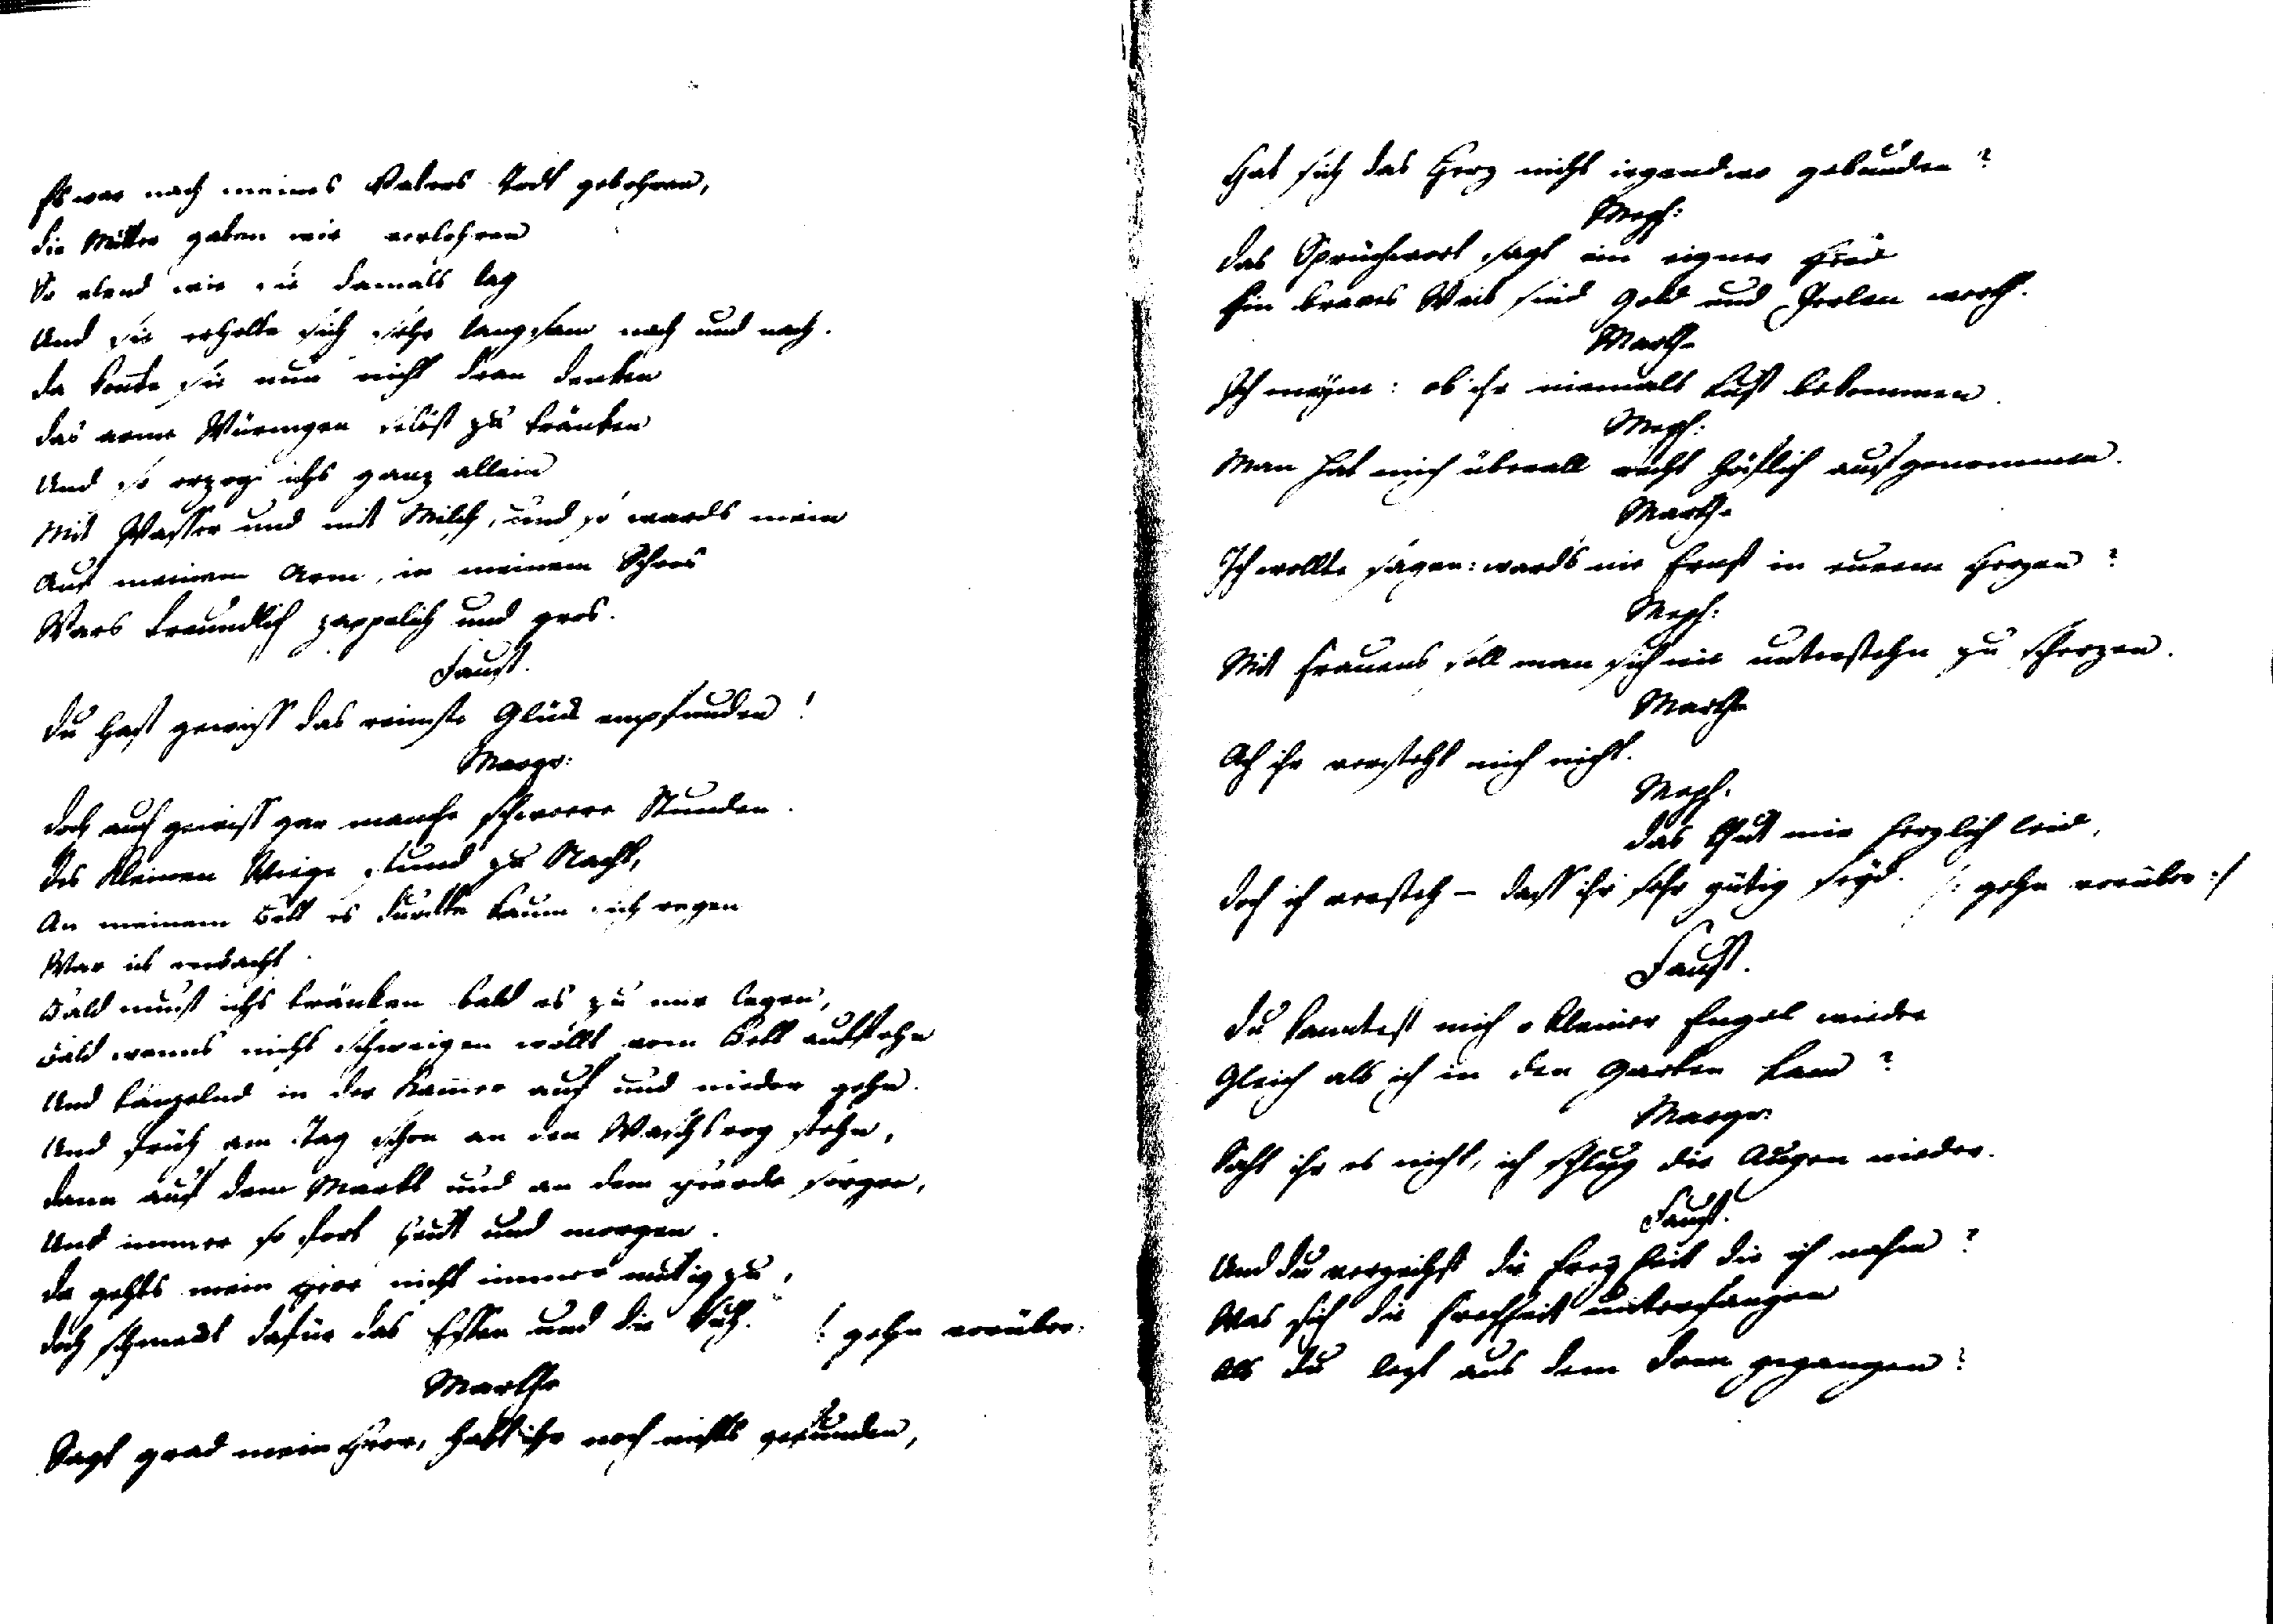 Es war nach meines Vaters Todt gebohren,
die Mutter gaben wir verlohren
So elend wie sie damals lag
Und sie erhohlte sich sehr langsam nach und nach.
da konnte sie nun nicht dran dencken
das arme Würmgen selbst zu tränken
Und so erzog ichs ganz allein
Mit Wasser und mit Milch, und so wards mein
Auf meinem Arm, in meinem Schoos
Wars freundlich zappelich und gros.
Faust.
Du hast gewiss das reinste Glück empfunden!
Margr:
doch auch gewiss gar manche schweere Stunden.
des kleinen Wiege stund zu Nacht,
An meinem Bett es durfte kaum sich regen
War ich erwacht.
Bald musst ichs tränken bald es zu mir legen,
Bald wenns nicht schweigen wollt vom Bett aufstehn
Und tänzelnd in der Kammer auf und nieder gehn.
Und früh am Tag schon an dem Waschtrog stehn,
dann auf dem Markt und an dem Heerde sorgen,
Und immer so fort heut und morgen.
da gehts mein Herr nicht immer mutig zu,
doch schmeckt dafür das Essen und die Ruh. /: gehn vorüber.
Marthe
Sagt grad mein Herr, habt ihr noch nichts gefunden,
Hat sich das Herz nicht irgendwo gebunden?
Meph:
das Sprüchwort sagt ein eigner Heerd
Ein braves Weib sind Gold und Perlen werth.
Marthe
Ich meyne: ob ihr niemals Lust bekommen.
Meph:
Man hat mich überall recht höflich aufgenommen.
Marthe
Ich wollte sagen: wards nie Ernst in eurem Herzen?
Meph:
Mit Frauens soll man sich nie unterstehn zu scherzen.
Marthe
Ach ihr versteht mich nicht.
Meph:
das thut mir herzlich leid,
doch ich versteh – dass ihr sehr gütig seyd. /: gehn vorüber :/
Faust.
Du kanntest mich o kleiner Engel wieder
Gleich als ich in den Garten kam?
Margr:
Saht ihr es nicht, ich schlug die Augen nieder.
Faust.
Und du verzeihst die Freyheit die ich nahm?
Was sich die Frechheit unterfangen
Als du lezt aus dem Dom gegangen?